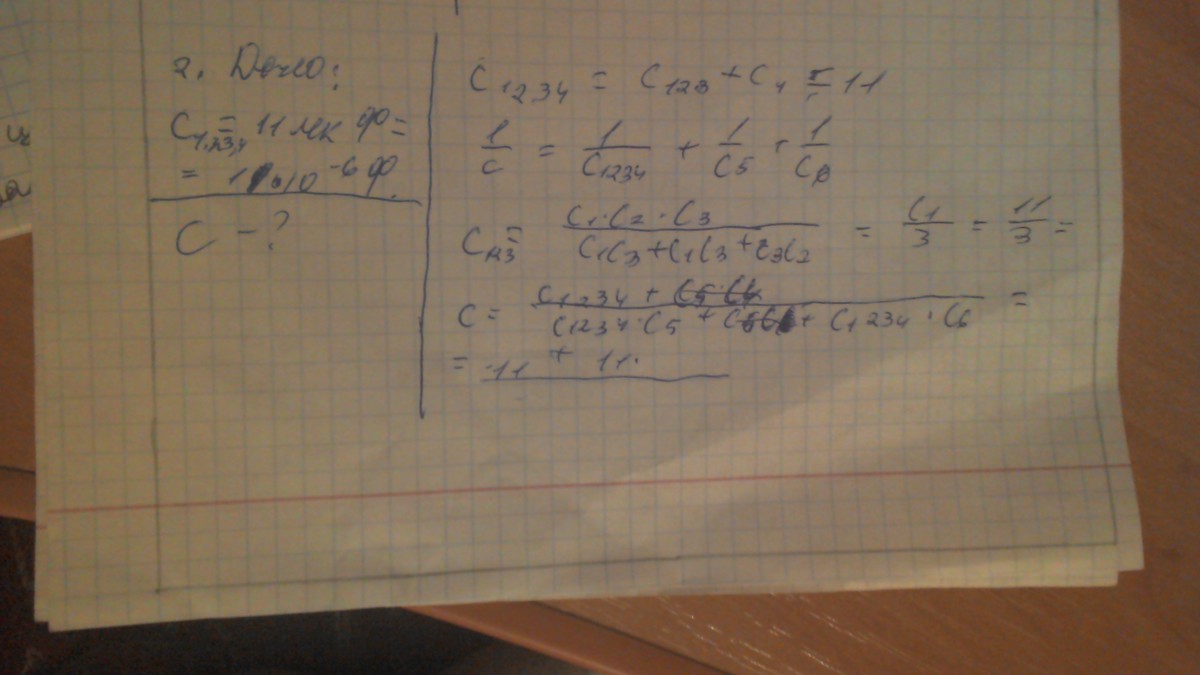 2. Дано:
C1,2,3,4 = 11 мкФ =
= 11·10^-6 Ф.
C - ?
C1234 = C123 + C4 = 11
1/C = 1/C1234 + 1/C5 + 1/C6
C123 = C1·C2·C3/(C1C3+C1C3+C3C2) = C1/3 = 11/3 =
C = C1234 + C5·C6/(C1234·C5 + C5C6 + C1234·C6) =
= 11 + 11·